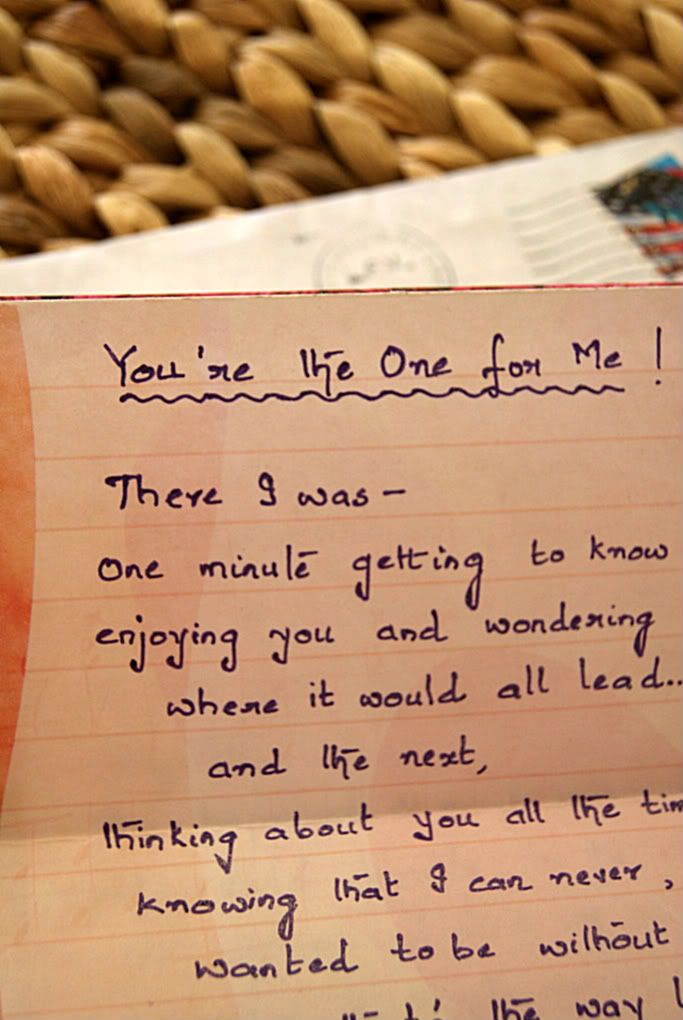 You're the One for Me!
There I was -
One minute getting to know
enjoying you and wondering
where it would all lead..
and the next,
thinking about you all the
knowing that I can never,
wanted to be without
the way